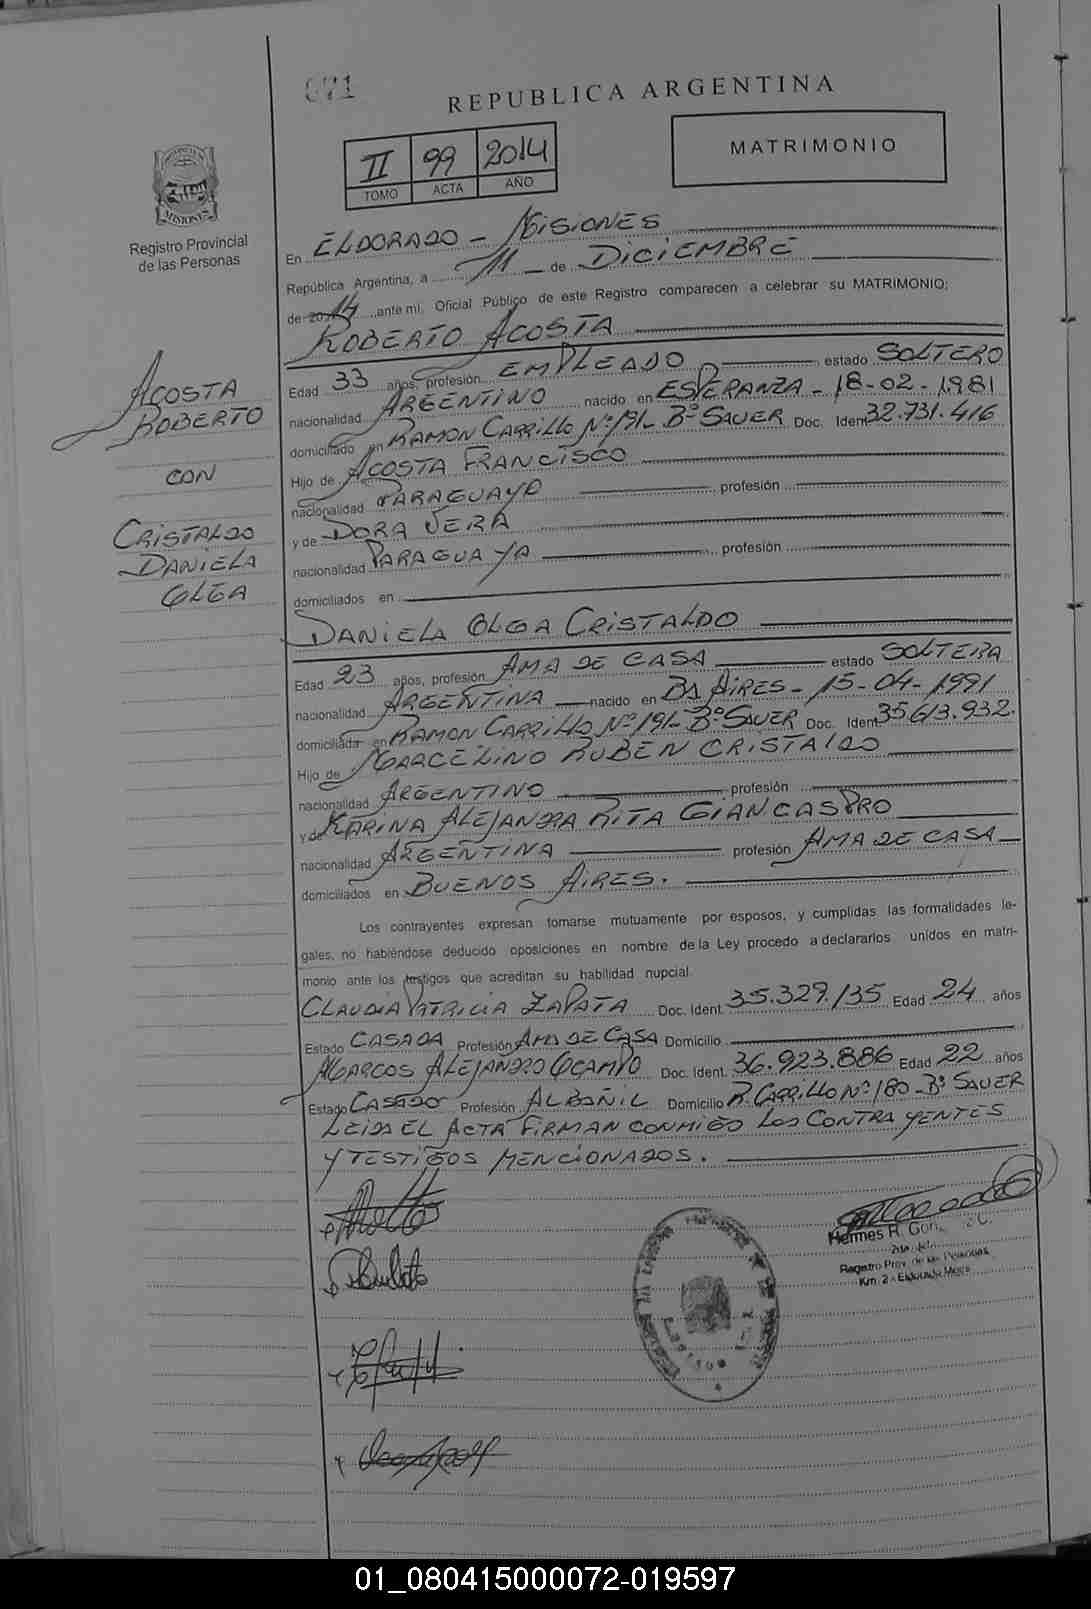 071
REPUBLICA ARGENTINA
II 99 2014
TOMO ACTA AÑO
MATRIMONIO
MISIONES
Registro Provincial
de las Personas
En ELDORADO - MISIONES
República Argentina, a 11 de DICIEMBRE
de 2014 ante mi, Oficial Público de este Registro comparecen a celebrar su MATRIMONIO:
ROBERTO ACOSTA
Edad 33 años, profesión EMPLEADO estado SOLTERO
nacionalidad ARGENTINO nacido en ESPERANZA - 18-02-1981
domiciliado en RAMON CARRILLO Nº 191- Bº SAUER Doc. Ident 32.731.416
Hijo de ACOSTA FRANCISCO
nacionalidad PARAGUAYO profesión
y de DORA VERA
nacionalidad PARAGUAYA profesión
domiciliados en
ACOSTA
ROBERTO
CON
CRISTALDO
DANIELA
OLGA
DANIELA OLGA CRISTALDO
Edad 23 años, profesión AMA DE CASA estado SOLTERA
nacionalidad ARGENTINA nacido en Bs AIRES - 15-04-1991
domiciliada en RAMON CARRILLO Nº 191- Bº SAUER Doc. Ident 35.613.932
Hijo de MARCELINO RUBEN CRISTALDO
nacionalidad ARGENTINO profesión
y de KARINA ALEJANDRA RITA GIANCASPRO
nacionalidad ARGENTINA profesión AMA DE CASA
domiciliados en BUENOS AIRES.
Los contrayentes expresan tomarse mutuamente por esposos, y cumplidas las formalidades le-
gales, no habiéndose deducido oposiciones en nombre de la Ley procedo a declararlos unidos en matri-
monio ante los testigos que acreditan su habilidad nupcial.
CLAUDIA PATRICIA ZAPATA Doc. Ident. 35.329.135 Edad 24 años
Estado CASADA Profesión AMA DE CASA Domicilio
MARCOS ALEJANDRO OCAMPO Doc. Ident. 36.923.886 Edad 22 años
Estado CASADO Profesión ALBAÑIL Domicilio R. CARRILLO Nº 180 - Bº SAUER
LEIDA EL ACTA FIRMAN CONMIGO LOS CONTRAYENTES
Y TESTIGOS MENCIONADOS.
Hermes R.
Registro Prov. de las Personas
Km. 2 - Eldorado Mnes
01_080415000072-019597